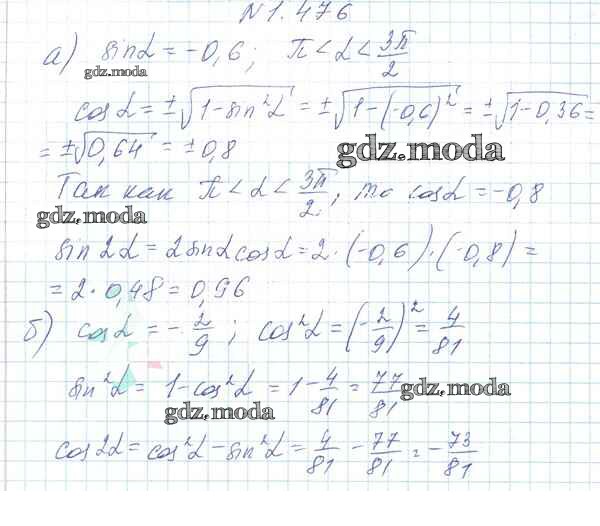 N 1.476
а) sinα = -0,6; π < α < 3π/2
gdz.moda
cosα = ±√(1-sin²α) = ±√(1-(-0,6)²) = ±√(1-0,36) =
= ±√0,64 = ±0,8
gdz.moda
Так как π < α < 3π/2, то cosα = -0,8
gdz.moda
sin2α = 2sinαcosα = 2·(-0,6)·(-0,8) =
= 2·0,48 = 0,96
б) cosα = -2/9; cos²α = (-2/9)² = 4/81
sin²α = 1-cos²α = 1-4/81 = 77/81
gdz.moda
gdz.moda
cos2α = cos²α - sin²α = 4/81 - 77/81 = -73/81